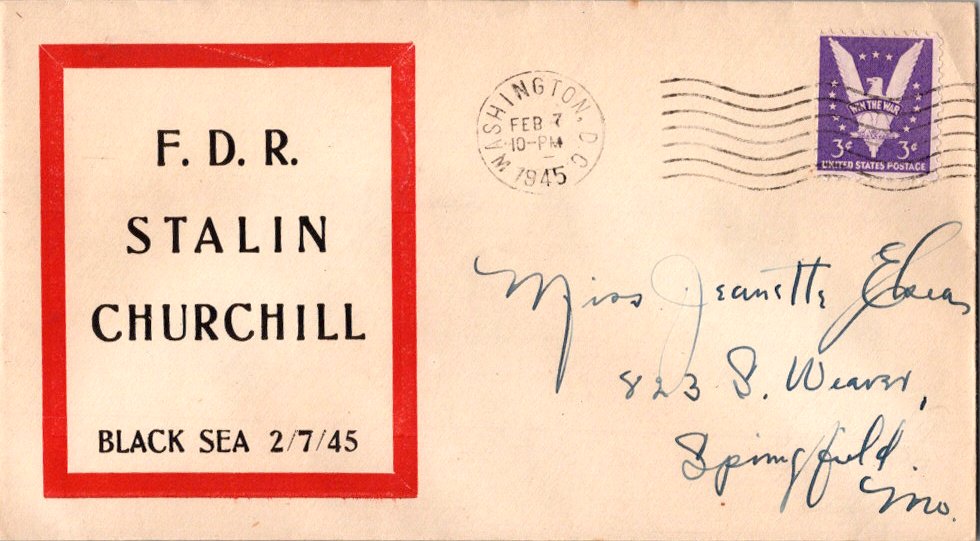 F. D. R.
STALIN
CHURCHILL
BLACK SEA 2/7/45
WASHINGTON, D.C.
FEB 7
10-PM
1945
WIN THE WAR
3¢ 3¢
UNITED STATES POSTAGE
Miss Jeanette
823 S. Weaver,
Springfield.
Mo.